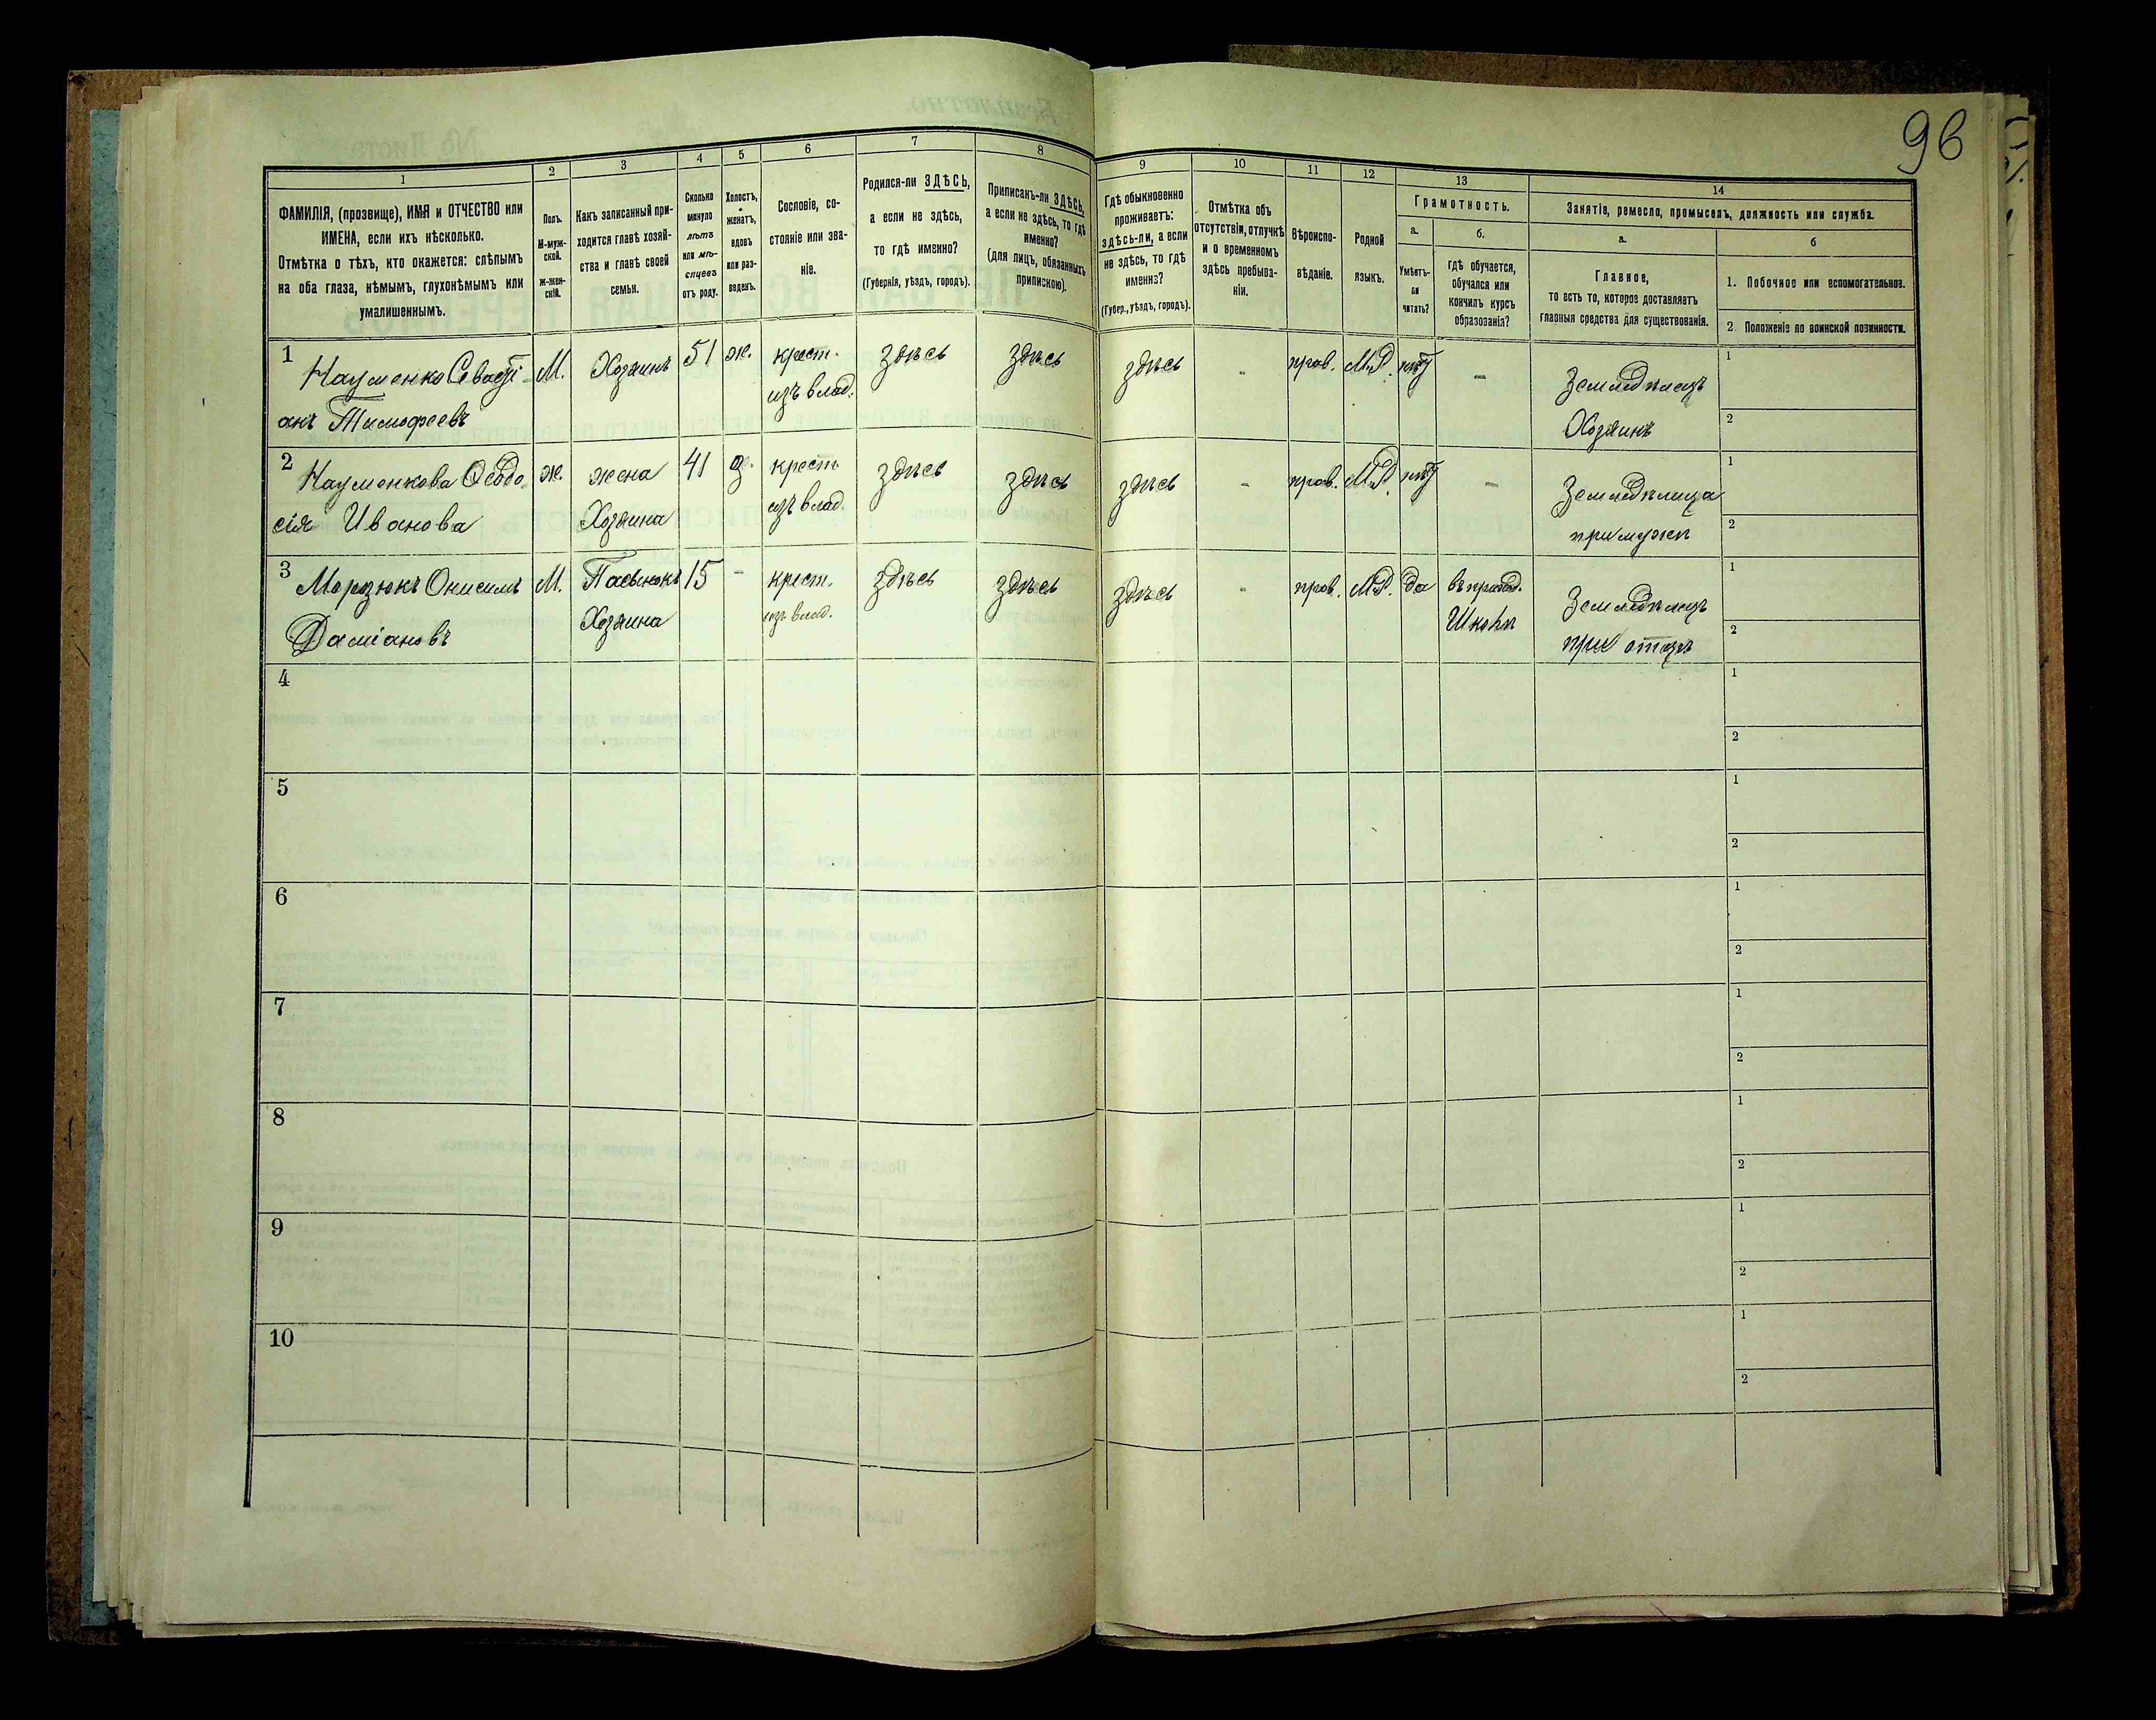 96
1
2
3
4
5
6
7
8
9
10
11
12
13
14
ФАМИЛІЯ, (прозвище), ИМЯ и ОТЧЕСТВО или
ИМЕНА, если ихъ нѣсколько.
Отмѣтка о тѣхъ, кто окажется: слѣпымъ
на оба глаза, нѣмымъ, глухонѣмымъ или
умалишеннымъ.
Полъ.
М-муж-
ской.
ж-жен-
скій.
Какъ записанный при-
ходится главѣ хозяй-
ства и главѣ своей
семьи.
Сколько
минуло
лѣтъ
или мѣ-
сяцевъ
отъ роду.
Холостъ,
женатъ,
вдовъ
или раз-
веденъ.
Сословіе, со-
стояніе или зва-
ніе.
Родился-ли ЗДѢСЬ,
а если не здѣсь,
то гдѣ именно?
(Губернія, уѣздъ, городъ).
Приписанъ-ли ЗДѢСЬ,
а если не здѣсь, то гдѣ
именно?
(для лицъ, обязанныхъ
припискою).
Гдѣ обыкновенно
проживаетъ:
здѣсь-ли, а если
не здѣсь, то гдѣ
именно?
(Губер., уѣздъ, городъ).
Отмѣтка объ
отсутствіи, отлучкѣ
и о временномъ
здѣсь пребыва-
ніи.
Вѣроиспо-
вѣданіе.
Родной
языкъ.
Грамотность.
а.
Умѣетъ-
ли
читать?
б.
гдѣ обучается,
обучался или
кончилъ курсъ
образованія?
Занятіе, ремесло, промыселъ, должность или служба.
а.
Главное,
то есть то, которое доставляетъ
главныя средства для существованія.
б
1. Побочное или вспомогательное.
2. Положеніе по воинской повинности.
1
Науменко Севасті
анъ Тимофеевъ
М.
Хозяинъ
51
ж.
крест.
изъ влад.
здѣсь
здѣсь
здѣсь
-
прав.
М.Р.
нѣт
-
Земледѣлецъ
Хозяинъ
1
2
2
Науменкова Феодо
сія Ивановa
ж.
жена
Хозяина
41
з.
крест.
изъ влад.
здѣсь
здѣсь
здѣсь
-
прав.
М.Р.
нѣт
-
Земледѣлица
при мужѣ
1
2
3
Морозюкъ Онисимъ
Даміановъ
М.
Пасынокъ
Хозяина
15
-
крест.
изъ влад.
здѣсь
здѣсь
здѣсь
-
прав.
М.Р.
да
Школѣ
Земледѣлецъ
при отцѣ
1
2
4
1
2
5
1
2
6
1
2
7
1
2
8
1
2
9
1
2
10
1
2